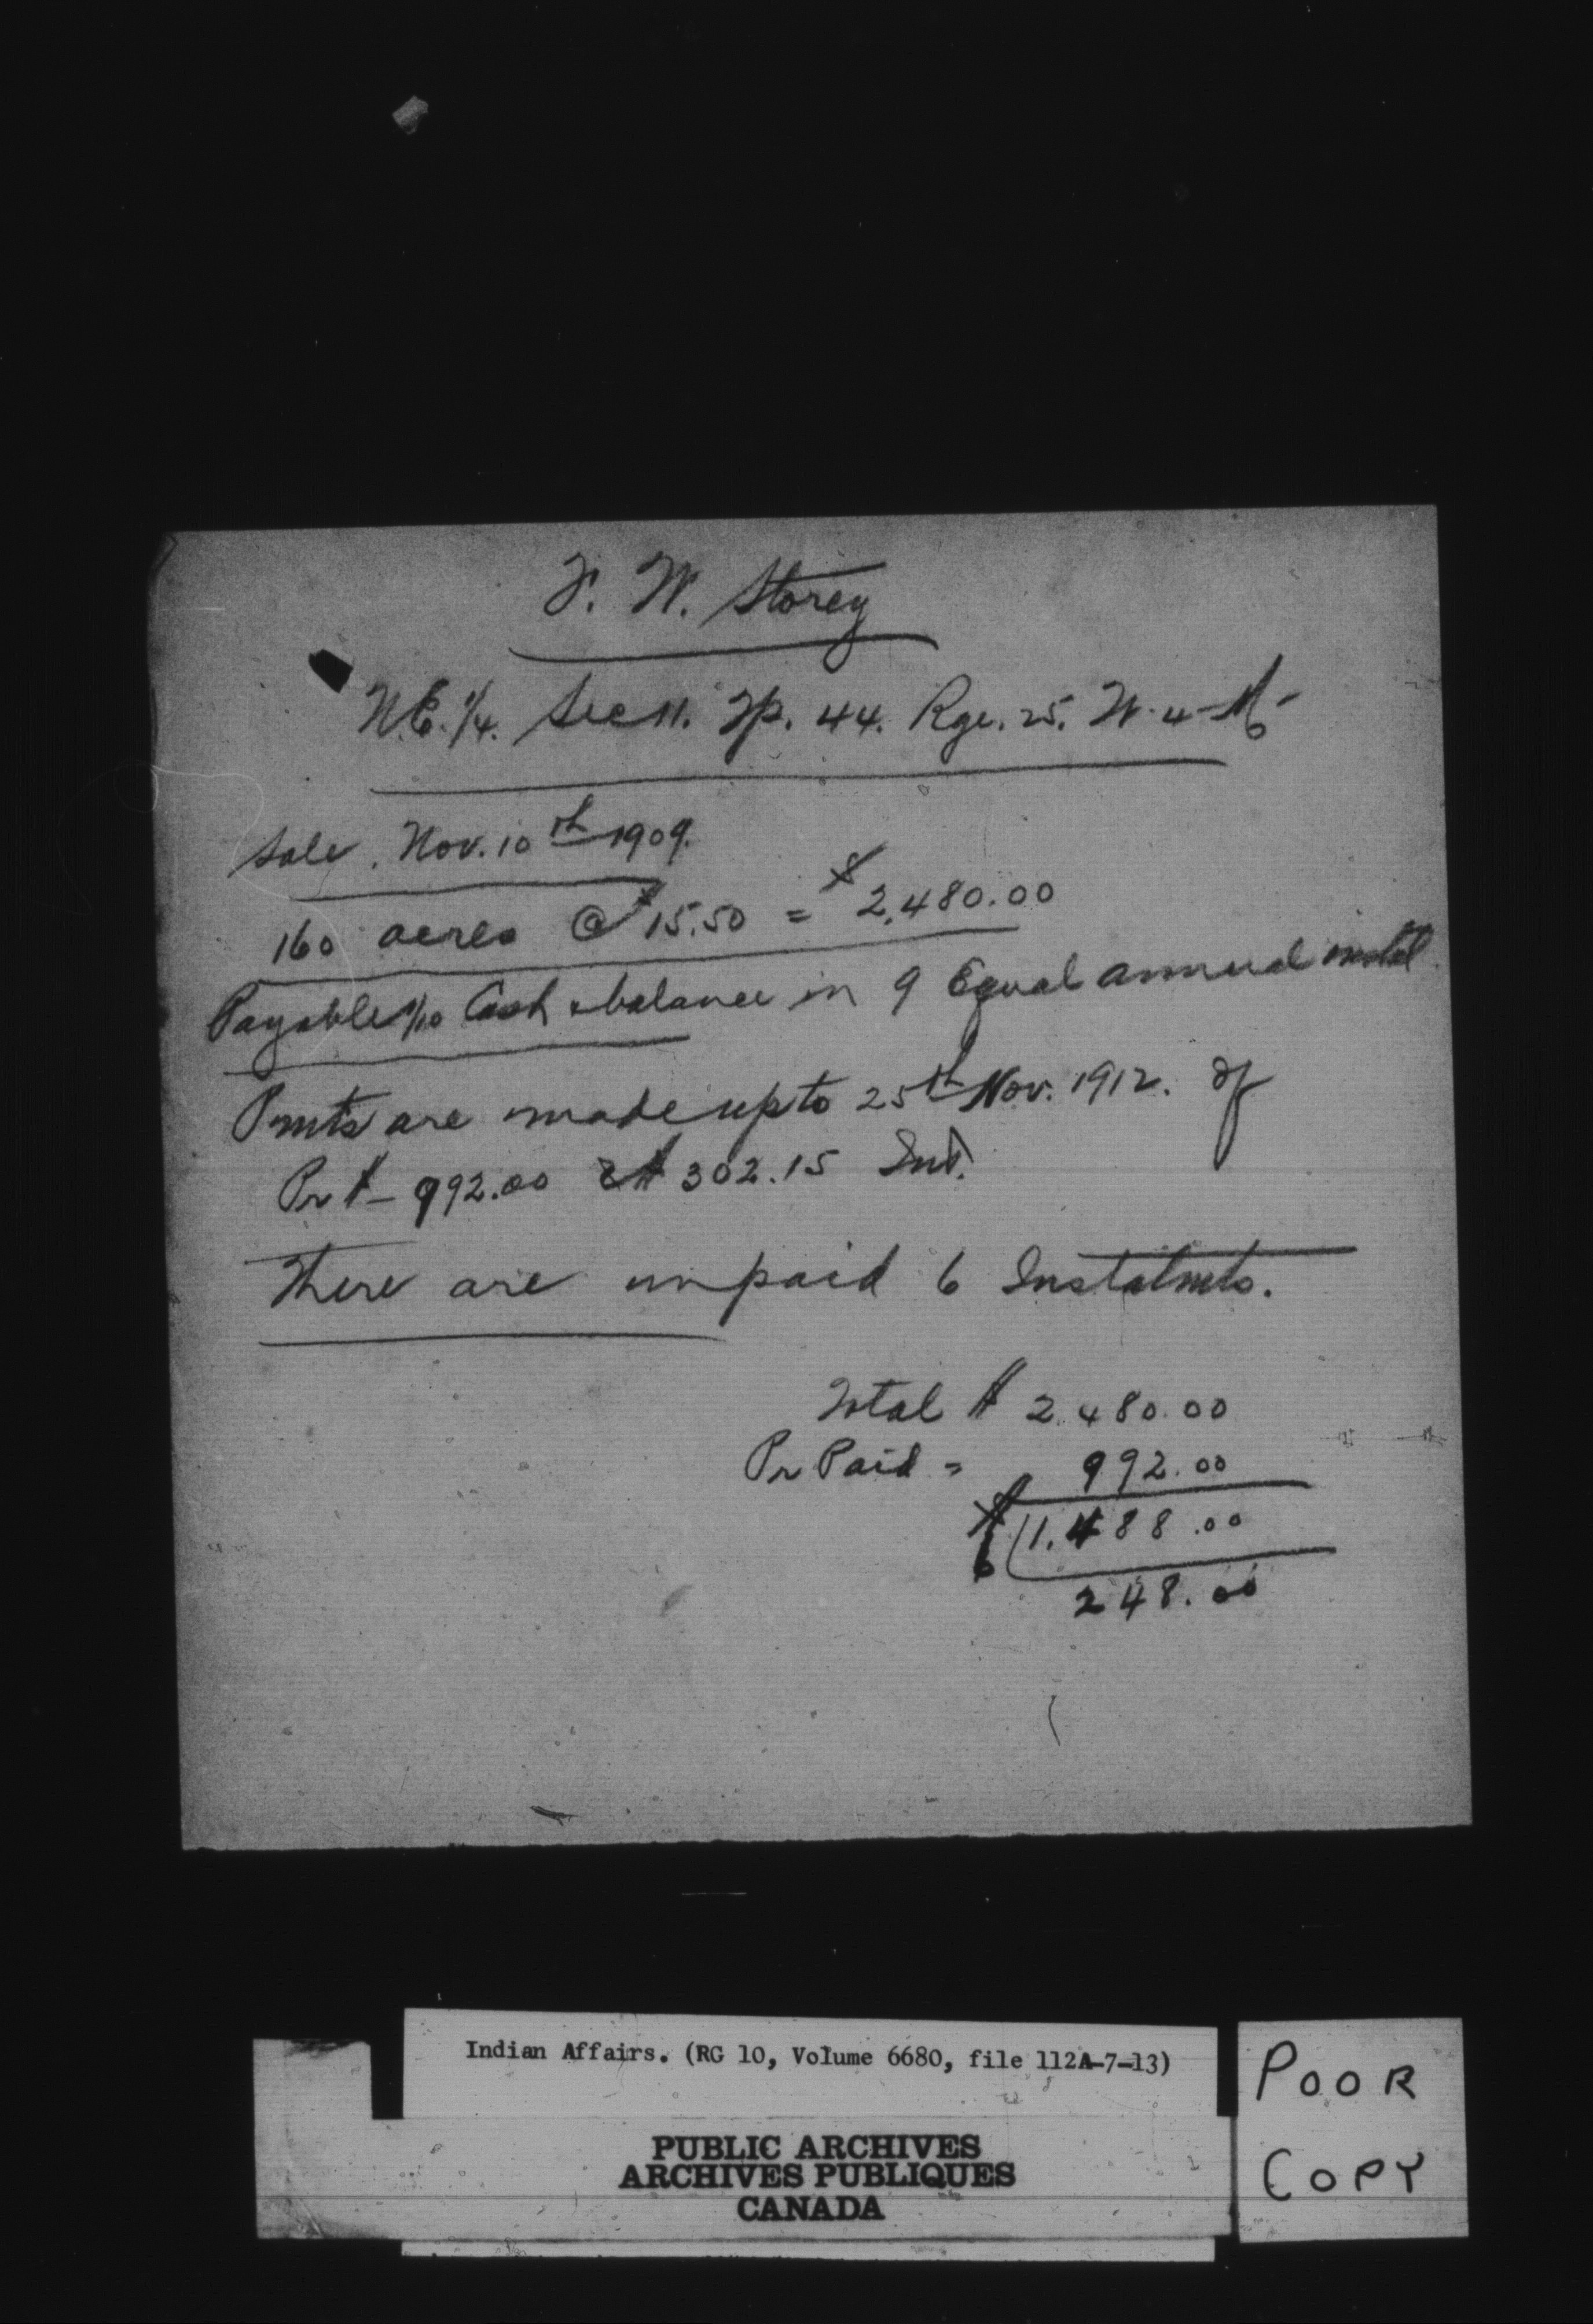 F. W. Storey
N.E. 1/4. Sec 11. Tp. 44. Rge. 25. W. 4 M.
Sale. Nov. 10th 1909.
160 acres @ $15.50 = $2,480.00
Payable 1/10 Cash & balance in 9 Equal annual instal
Pmts are made up to 25th Nov. 1912. of
Pr $ - 992.00 & $ 302.15 Int.
There are unpaid 6 Instalmts.
Total $ 2.480.00
Pr Paid = 992.00
$ 1.488.00
6
248.00
Indian Affairs. (RG 10, Volume 6680, file 112A-7-13)
PUBLIC ARCHIVES
ARCHIVES PUBLIQUES
CANADA
POOR
COPY